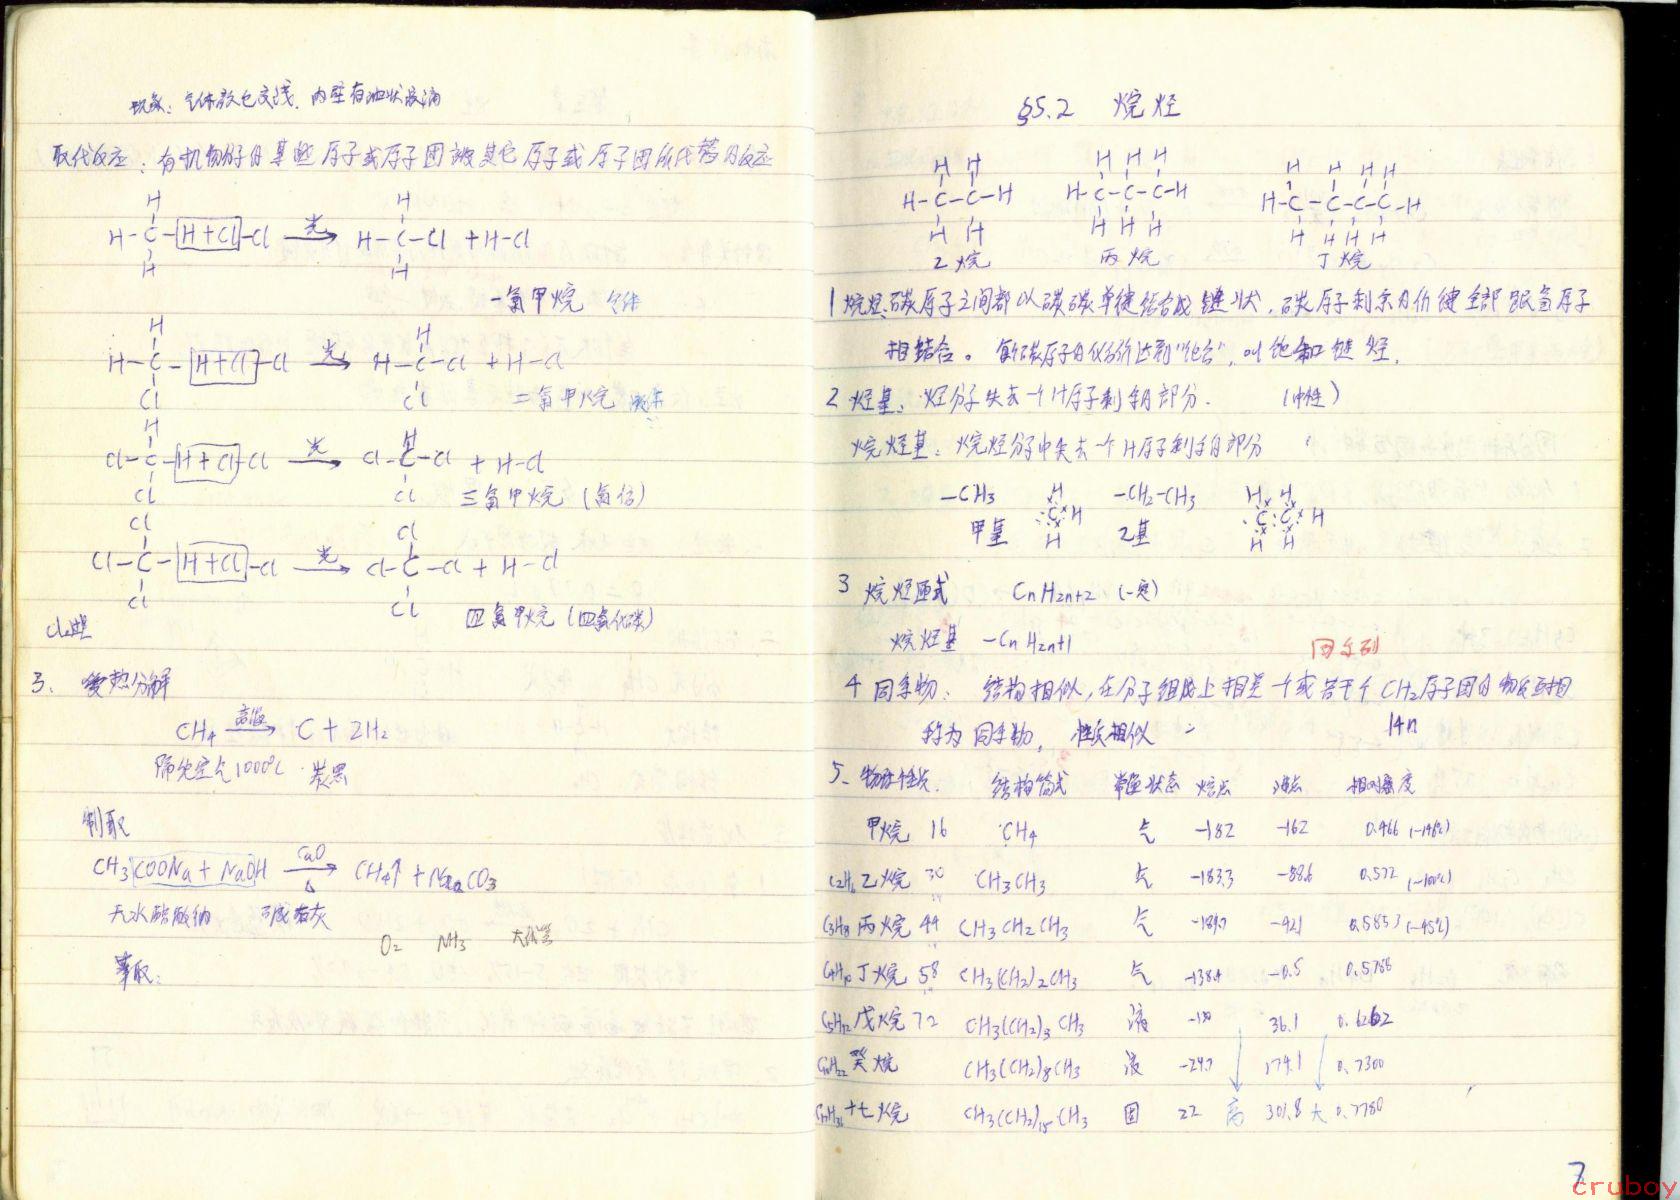 现象：气体颜色变浅．内壁有油状液滴
取代反应：有机物分子的某些原子或原子团被其它原子或原子团所代替的反应
H H
H-C-H+Cl-Cl 光→ H-C-Cl +H-Cl
H H
一氯甲烷 气体
H H
H-C-H+Cl-Cl 光→ H-C-Cl + H-Cl
Cl Cl
二氯甲烷 液体
H H
Cl-C-H+Cl-Cl 光→ Cl-C-Cl + H-Cl
Cl Cl
三氯甲烷（氯仿）
Cl Cl
Cl-C-H+Cl-Cl 光→ Cl-C-Cl + H-Cl
Cl Cl
四氯甲烷（四氯化碳）
3、受热分解
CH4 高温→ C + 2H2
隔绝空气1000℃ 炭黑
制取
CH3COONa + NaOH CaO△→ CH4↑+Na2CO3
无水醋酸钠 碱石灰
O2 NH3
§5.2 烷烃
H H H H H H H H H
H-C-C-H H-C-C-C-H H-C-C-C-C-H
H H H H H H H H H
乙烷 丙烷 丁烷
1 烷烃：碳原子之间都以碳碳单键结合成链状，碳原子剩余的价键全部跟氢原子
相结合。每个碳原子的化合价达到“饱合”，叫饱和链烃．
2 烃基：烃分子失去一个H原子剩余的部分．（中性）
烷烃基：烷烃分子中失去一个H原子剩余的部分
-CH3 H C H H -CH2-CH3 H H C C H H H
甲基 乙基
3 烷烃通式 CnH2n+2 （一定）
烷烃基 -CnH2n+1
同系列
4 同系物：结构相似，在分子组成上相差一个或若干个CH2原子团的物质互相
称为同系物，性质相似 14n
5、物理性质． 结构简式 常温状态 熔点 沸点 相对密度
甲烷 16 CH4 气 -182 -162 0.466 (-164℃)
C2H6 乙烷 30 CH3CH3 气 -183.3 -88.6 0.572 (-100℃)
C3H8 丙烷 44 CH3CH2CH3 气 -189.7 -42.1 0.5853 (-45℃)
C4H10 丁烷 58 CH3(CH2)2CH3 气 -138.4 -0.5 0.5788
C5H12 戊烷 72 CH3(CH2)3CH3 液 -130 36.1 0.6262
C10H22 癸烷 CH3(CH2)8CH3 液 -29.7 174.1 0.7300
C17H36 十七烷 CH3(CH2)15CH3 固 22 高 301.8 大 0.7780
7
cruboy